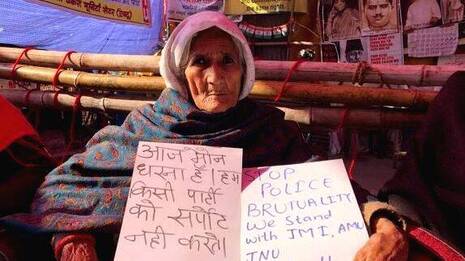 आज मौन
धरना है। हम
किसी पार्टी
को सर्पोट
नही करते।
STOP
POLICE
BRUTUALITY
We Stand
with JMI, AMU
JNU